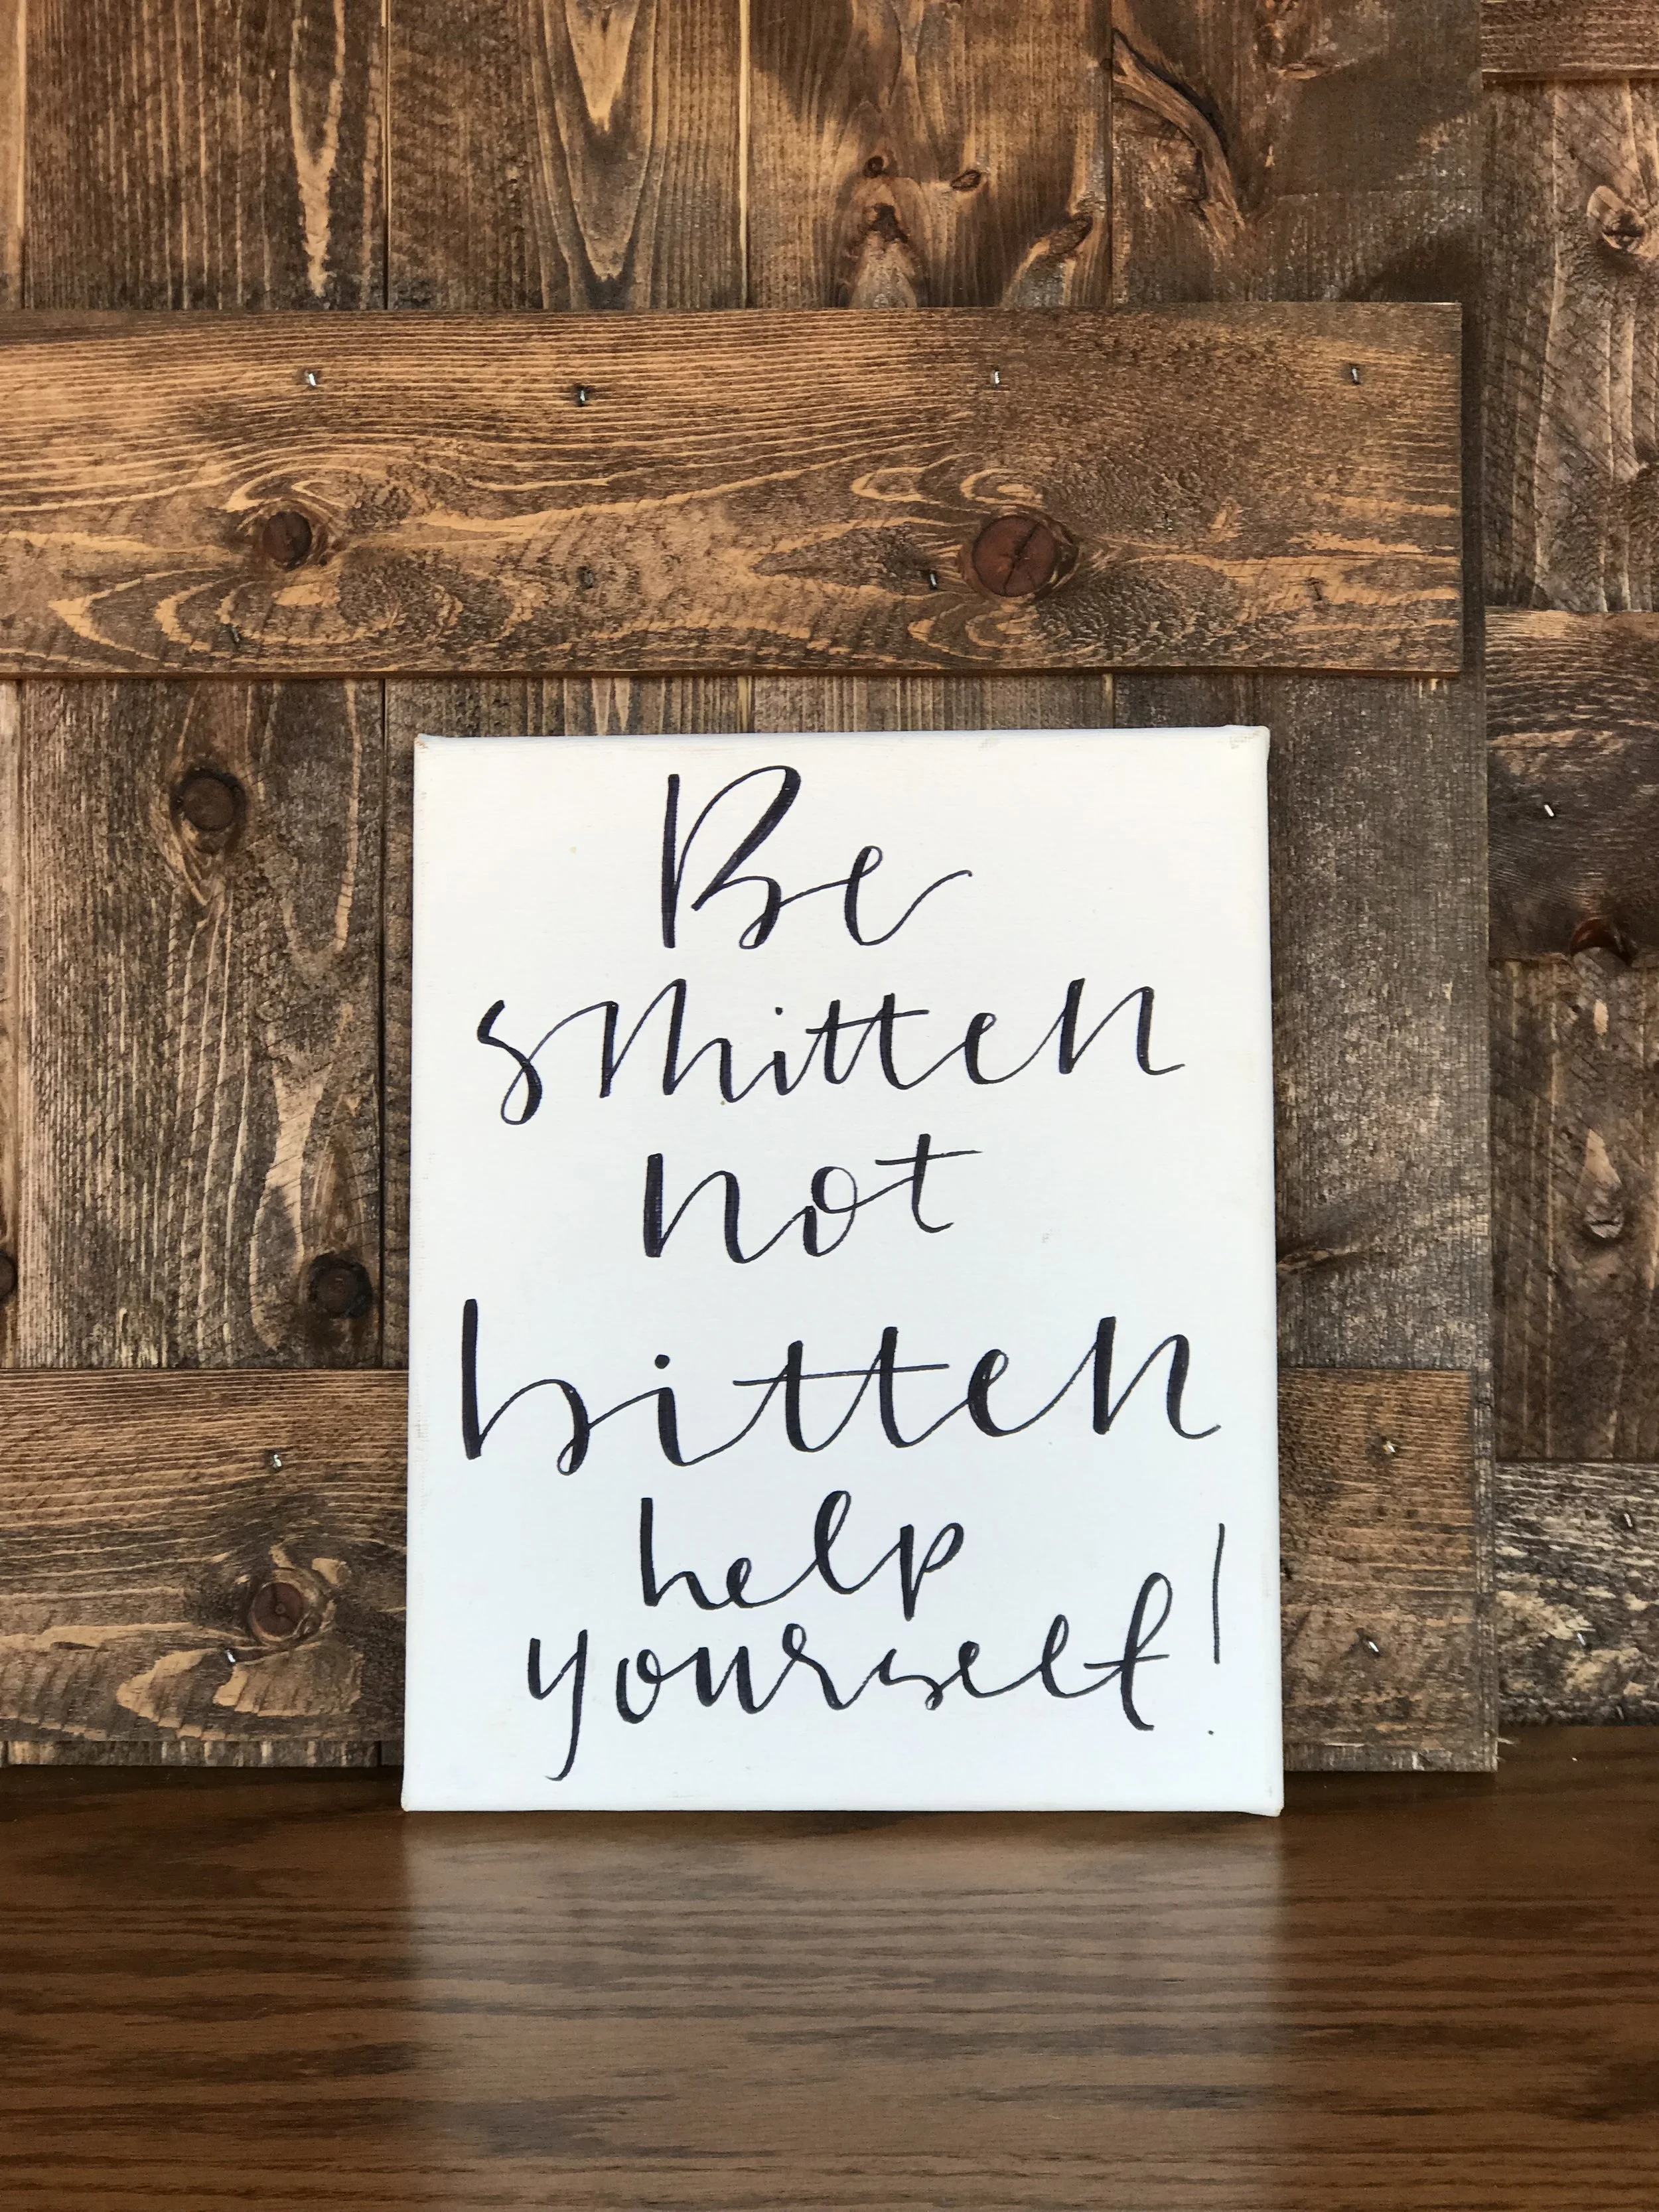 Be
smitten
not
bitten
help
yourself!